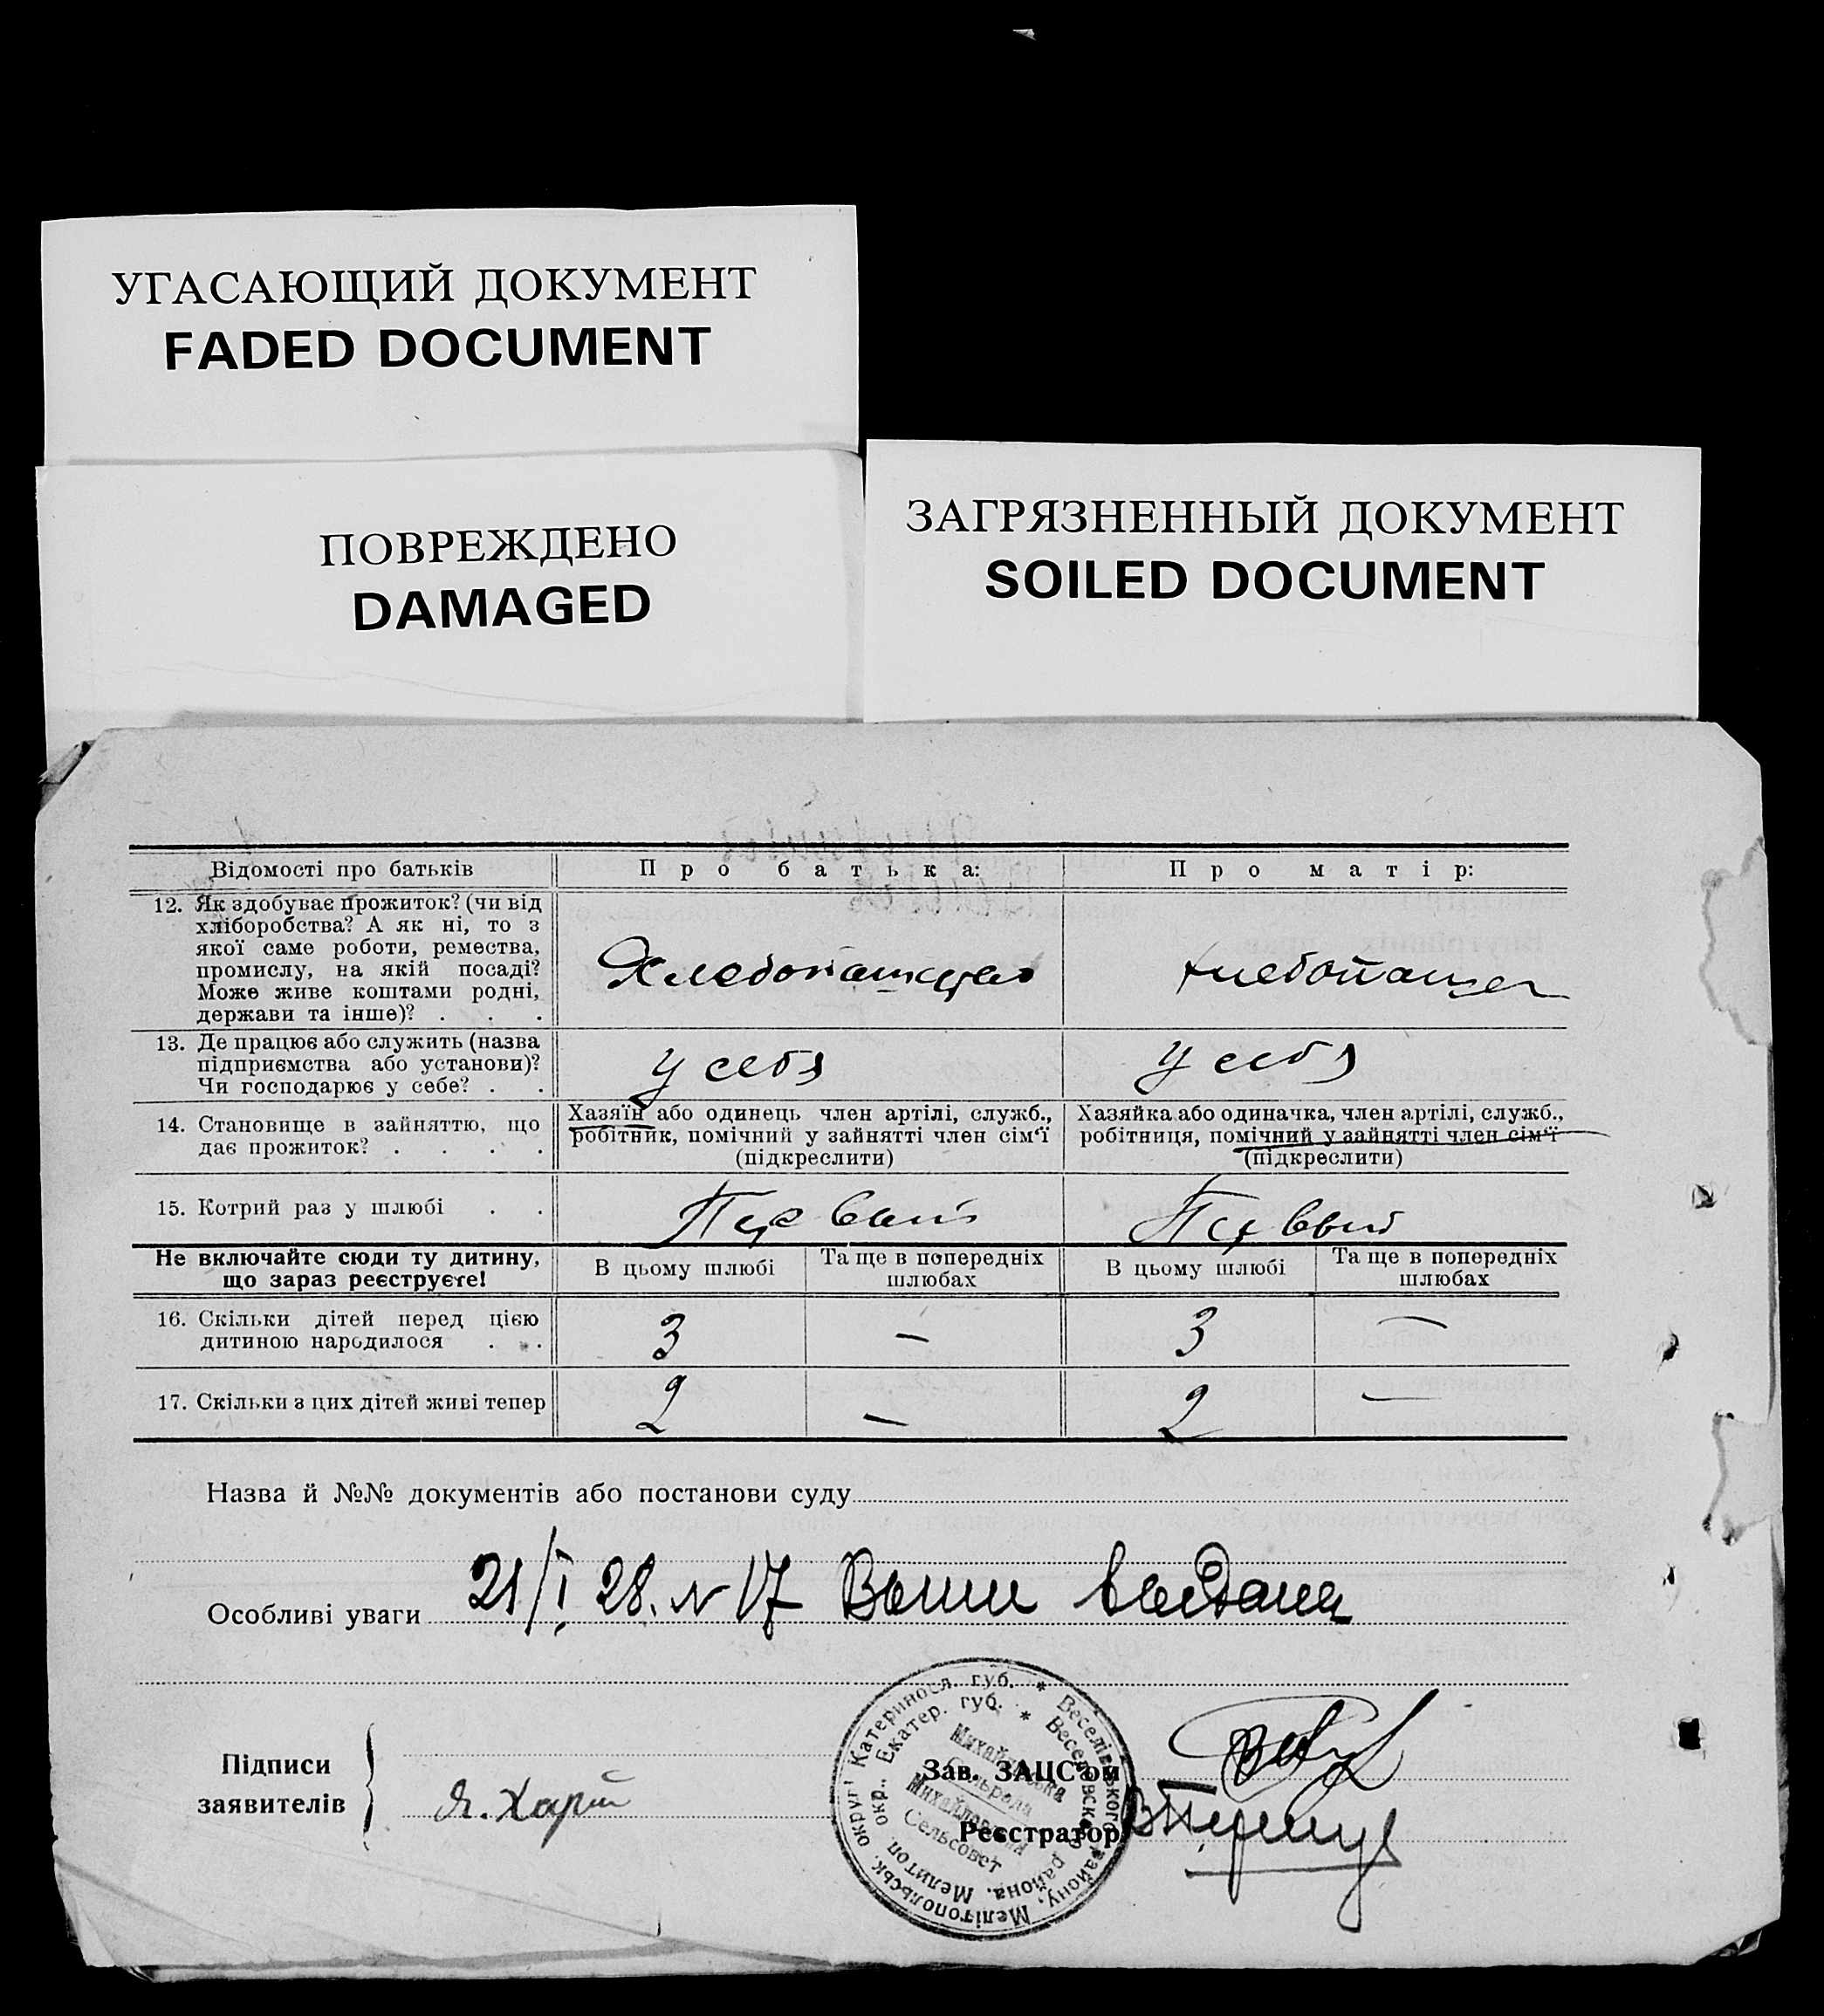 УГАСАЮЩИЙ ДОКУМЕНТ
FADED DOCUMENT
ПОВРЕЖДЕНО
DAMAGED
ЗАГРЯЗНЕННЫЙ ДОКУМЕНТ
SOILED DOCUMENT
Відомості про батьків
Про батька:
Про матір:
12. Як здобуває прожиток? (чи від
хліборобства? А як ні, то з
якої саме роботи, ремества,
промислу, на якій посаді?
Може живе коштами родні,
держави та інше)? . . .
Хлебопашцтво
хлебопашец
13. Де працює або служить (назва
підприємства або установи)?
Чи господарює у себе? . .
у себя
у себя
14. Становище в зайняттю, що
дає прожиток? . . . .
Хазяїн або одинець член артілі, служб.,
робітник, помічний у зайнятті член сім'ї
(підкреслити)
Хазяйка або одиначка, член артілі, служб.,
робітниця, помічний у зайнятті член сім'ї
(підкреслити)
15. Котрий раз у шлюбі . .
Первый
Первый
Не включайте сюди ту дитину,
що зараз реєструєте!
В цьому шлюбі
Та ще в попередніх
шлюбах
В цьому шлюбі
Та ще в попередніх
шлюбах
16. Скільки дітей перед цією
дитиною народилося . .
3
—
3
—
17. Скільки з цих дітей живі тепер
2
—
2
—
Назва й №№ документів або постанови суду
Особливі уваги 21/I 28. N 17 Выпи выдана
Підписи
заявителів
Я. Харій
Зав. ЗАЦС'ом
Реєстратор
Веселівського району, Мелітопольськ. округ. Катериносл. губ. *
Веселовского района. Мелитоп. окр. Екатер. губ. *
Михайлівська
Сельрада
Михайловский
Сельсовет